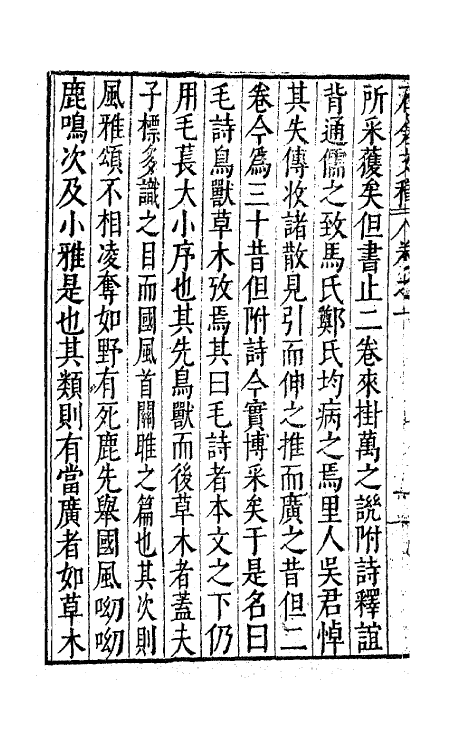 所采獲矣但書止二卷來掛萬之説附詩釋誼
背通儒之致馬氏鄭氏均病之焉里人吳君悼
其失傳收諸散見引而伸之推而廣之昔但二
卷今爲三十昔但附詩今實博采矣于是名曰
毛詩鳥獸草木攷焉其曰毛詩者本文之下仍
用毛萇大小序也其先鳥獸而後草木者蓋夫
子標多識之目而國風首關雎之篇也其次則
風雅頌不相凌奪如野有死鹿先舉國風呦呦
鹿鳴次及小雅是也其類則有當廣者如草木